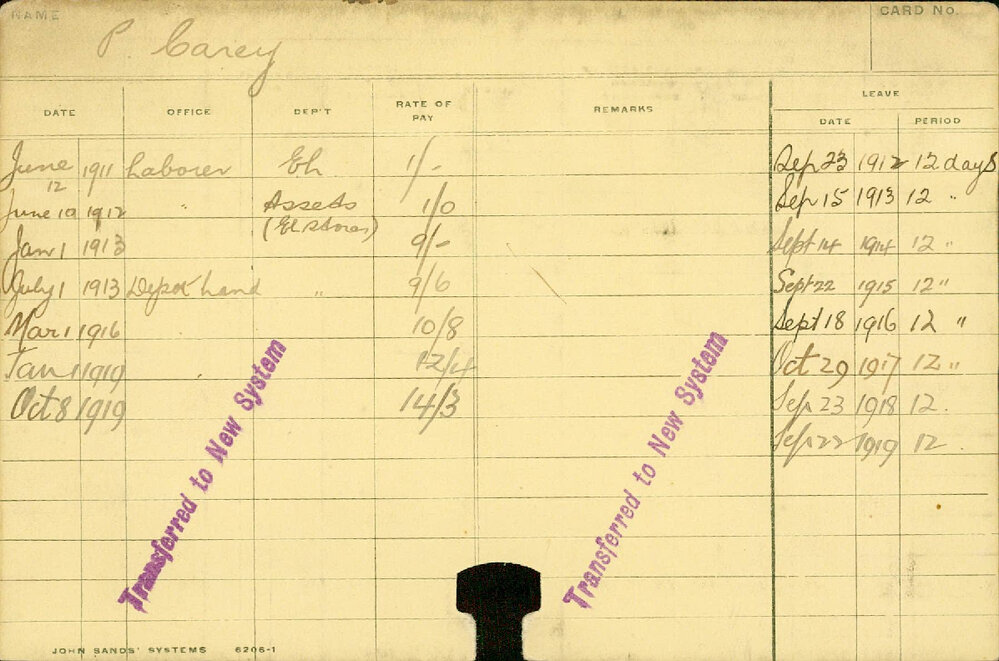 NAME
CARD No.
P. Carey
LEAVE
DATE OFFICE DEP'T RATE OF PAY REMARKS DATE PERIOD
June 12 1911 Laborer Eh 1/- Sep 23 1912 12 days
June 10 1912 " Assets (El Stores) 1/0 Sep 15 1913 12 "
Jan 1 1913 9/- Sept 14 1914 12 "
July 1 1913 Depot hand " 9/6 Sept 22 1915 12 "
Mar 1 1916 10/8 Sept 18 1916 12 "
Jan 1 1919 12/4 Oct 29 1917 12 "
Oct 8 1919 14/3 Sep 23 1918 12.
Sep 22 1919 12
Transferred to New System
Transferred to New System
JOHN SANDS' SYSTEMS 6206-1